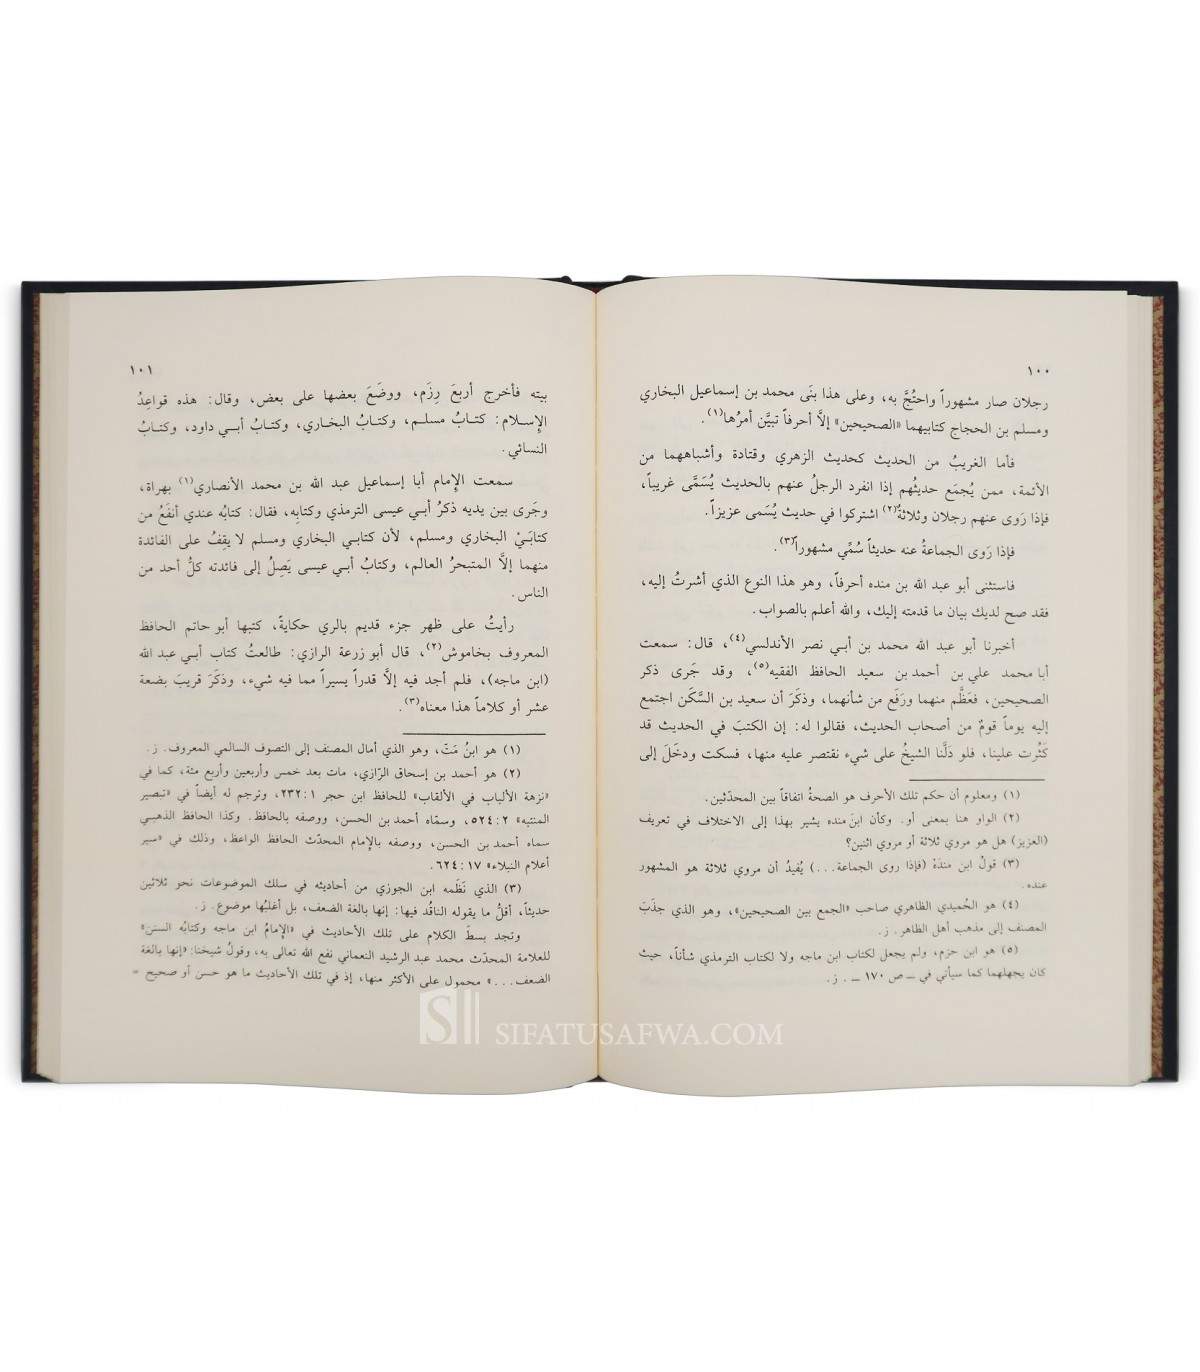 ١٠٠
رجلان صار مشهوراً واحتُجَّ به، وعلى هذا بنَى محمد بن إسماعيل البخاري
ومسلم بن الحجاج كتابيهما «الصحيحين» إلَّا أحرفاً تبيَّن أمرُها(١).
فأما الغريبُ من الحديث كحديث الزهري وقتادة وأشباههما من
الأئمة، ممن يُجمَع حديثُهم إذا انفرد الرجلُ عنهم بالحديث يُسَمَّى غريباً،
فإذا رَوى عنهم رجلان وثلاثةٌ(٢) اشتركوا في حديث يُسَمى عزيزاً.
فإذا رَوى الجماعةُ عنه حديثاً سُمِّي مشهوراً(٣).
فاستثنى أبو عبد الله بن منده أحرفاً، وهو هذا النوع الذي أشرتُ إليه،
فقد صح لديك بيان ما قدمته إليك، والله أعلم بالصواب.
أخبرنا أبو عبد الله محمد بن أبي نصر الأندلسي(٤)، قال: سمعت
أبا محمد علي بن أحمد بن سعيد الحافظ الفقيه(٥)، وقد جَرى ذكر
الصحيحين، فعَظَّم منهما ورَفَع من شأنهما، وذكَرَ أن سعيد بن السَّكَن اجتمع
إليه يوماً قومٌ من أصحاب الحديث، فقالوا له: إن الكتبَ في الحديث قد
كَثُرت علينا، فلو دَلَّنا الشيخُ على شيء نقتصر عليه منها، فسكت ودخَلَ إلى
(١) ومعلوم أن حكم تلك الأحرف هو الصحةُ اتفاقاً بين المحدّثين.
(٢) الواو هنا بمعنى أو. وكأن ابنَ منده يشير بهذا إلى الاختلاف في تعريف
(العزيز) هل هو مروي ثلاثة أو مروي اثنين؟
(٣) قولُ ابن مندَهْ (فإذا روى الجماعة...) يُفيدُ أن مروي ثلاثة هو المشهور
عنده.
(٤) هو الحُميدي الظاهري صاحب «الجمع بين الصحيحين»، وهو الذي جذَبَ
المصنف إلى مذهب أهل الظاهر. ز.
(٥) هو ابن حزم، ولم يجعل لكتاب ابن ماجه ولا لكتاب الترمذي شأناً، حيث
كان يجهلهما كما سيأتي في ــ ص ١٧٠ ــ . ز.
١٠١
بيته فأخرج أربعَ رِزَم، ووضَعَ بعضها على بعض، وقال: هذه قواعِدُ
الإِسلام: كتابُ مسلم، وكتابُ البخاري، وكتابُ أبي داود، وكتابُ
النسائي.
سمعت الإِمام أبا إسماعيل عبد الله بن محمد الأنصاري(١) بهراة،
وجَرى بين يديه ذكرُ أبي عيسى الترمذي وكتابِه، فقال: كتابُه عندي أنفَعُ من
كتابَيْ البخاري ومسلم، لأن كتابي البخاري ومسلم لا يقِفُ على الفائدة
منهما إلَّا المتبحرُ العالم، وكتابُ أبي عيسى يَصِلُ إلى فائدته كلُّ أحد من
الناس.
رأيتُ على ظهر جزء قديم بالري حكايةً، كتبها أبو حاتم الحافظ
المعروف بخاموش(٢)، قال أبو زرعة الرازي: طالعتُ كتاب أبي عبد الله
(ابن ماجه)، فلم أجد فيه إلَّا قدراً يسيراً مما فيه شيء، وذكَرَ قريبَ بضعة
عشر أو كلاماً هذا معناه(٣).
(١) هو ابنُ مَتّ، وهو الذي أمال المصنف إلى التصوف السالمي المعروف. ز.
(٢) هو أحمد بن إسحاق الرّازي، مات بعد خمس وأربعين وأربع مئة، كما في
«نزهة الألباب في الألقاب» للحافظ ابن حجر ١: ٢٣٢، وترجم له أيضاً في «تبصير
المنتبه» ٢: ٥٢٤، وسمّاه أحمد بن الحسن، ووصفه بالحافظ. وكذا الحافظ الذهبي
سماه أحمد بن الحسن، ووصفه بالإمام المحدّث الحافظ الواعظ، وذلك في «سير
أعلام النبلاء» ١٧: ٦٢٤.
(٣) الذي نَظَمه ابن الجوزي من أحاديثه في سلك الموضوعات نحو ثلاثين
حديثاً، أقلُّ ما يقوله الناقد فيها: إنها بالغة الضعف، بل أغلبُها موضوع. ز.
وتجد بسطَ الكلام على تلك الأحاديث في «الإمامُ ابن ماجه وكتابُه السنن»
للعلامة المحدّث محمد عبد الرشيد النعماني نفع الله تعالى به، وقولُ شيخنا: «إنها بالغة
الضعف...» محمول على الأكثر منها، إذ في تلك الأحاديث ما هو حسن أو صحيح =
SIFATUSAFWA.COM